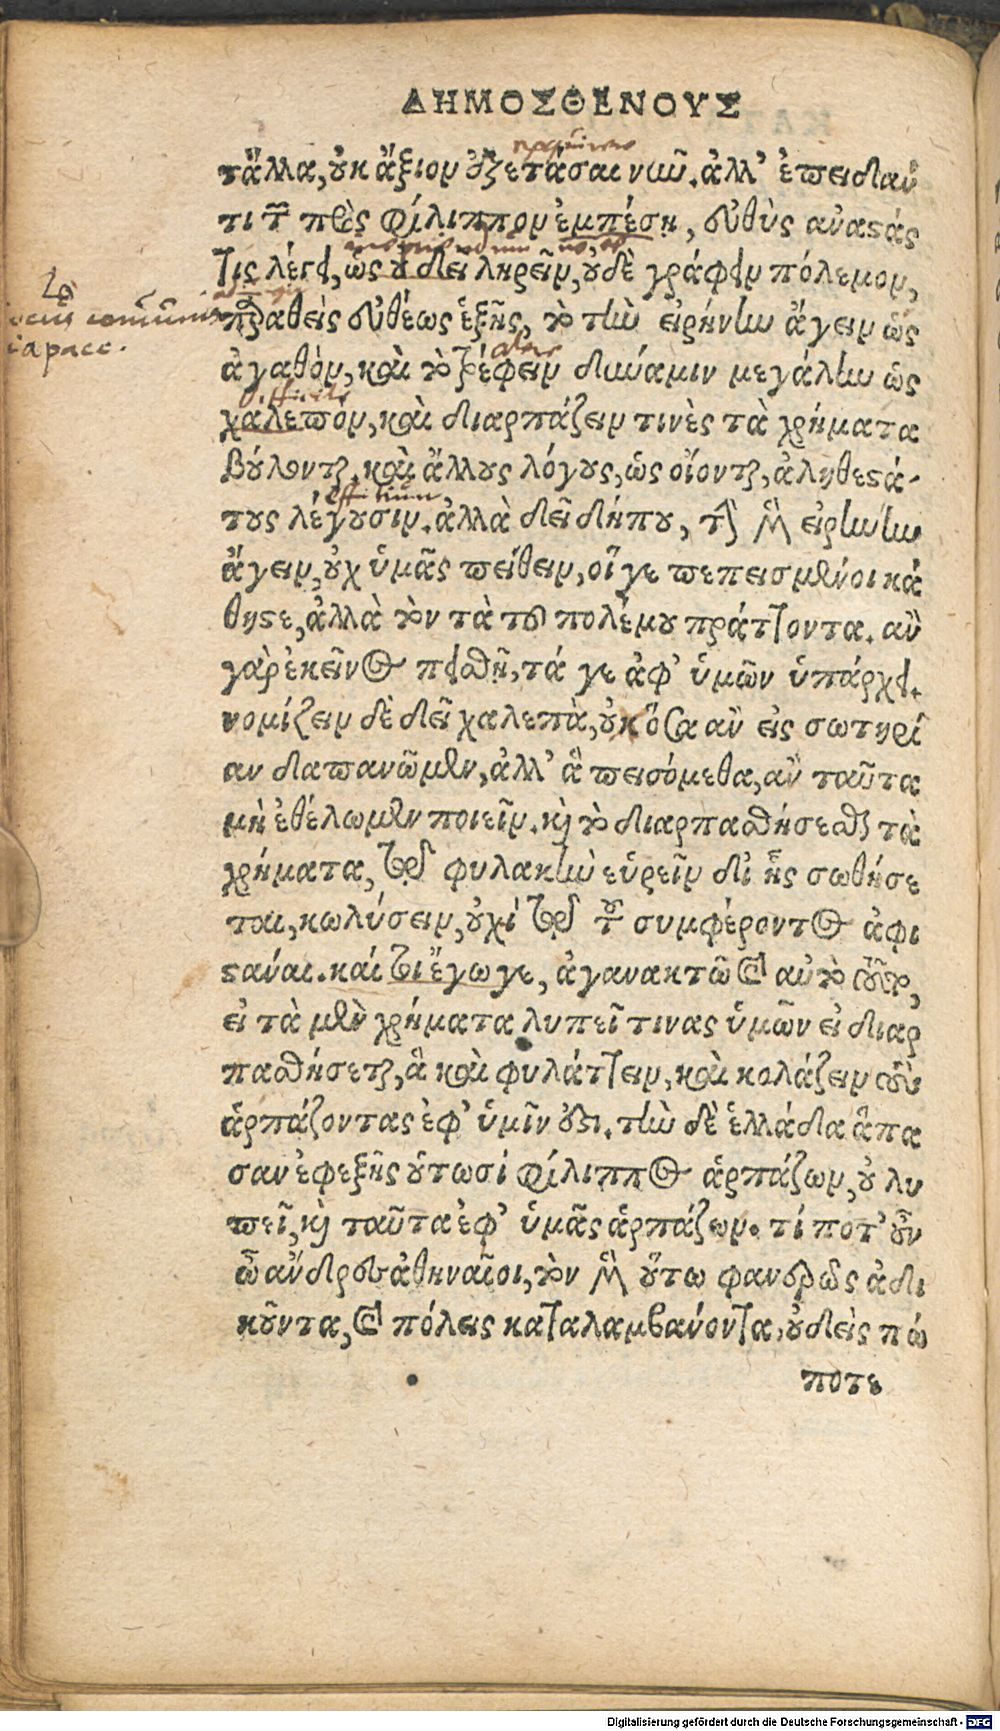 ΔΗΜΟΣΘΕΝΟΥΣ
τἄλλα, οὐκ ἄξιον ἐξετάσαι νῦν. ἀλλ' ἐπειδάν
τι τῶν πρὸς Φίλιππον ἐμπέσῃ, εὐθὺς ἀναστάς
τις λέγει, ὡς οὐ δεῖ ληρεῖν, οὐδὲ γράφειν πόλεμον,
παραθεὶς εὐθέως ἑξῆς, τὸ τὴν εἰρήνην ἄγειν ὡς
ἀγαθόν, καὶ τὸ τρέφειν δύναμιν μεγάλην ὡς
χαλεπόν, καὶ διαρπάζειν τινὲς τὰ χρήματα
βούλονται, καὶ ἄλλους λόγους, ὡς οἴονται, ἀληθεστά-
τους λέγουσιν. ἀλλὰ δεῖ δήπου, τὴν μὲν εἰρήνην
ἄγειν, οὐχ ὑμᾶς πείθειν, οἵ γε πεπεισμένοι κά
θησθε, ἀλλὰ τὸν τὰ τοῦ πολέμου πράττοντα. ἂν
γὰρ ἐκεῖνος πεισθῇ, τά γε ἀφ' ὑμῶν ὑπάρχει.
νομίζειν δὲ δεῖ χαλεπὰ, οὐκ ὅσα ἂν εἰς σωτηρί
αν δαπανῶμεν, ἀλλ' ἃ πεισόμεθα, ἂν ταῦτα
μὴ ἐθέλωμεν ποιεῖν. καὶ τὸ διαρπασθήσεσθαι τὰ
χρήματα, τῷ φυλακὴν εὑρεῖν δι' ἧς σωθήσε
ται, κωλύσειν, οὐχὶ τῷ τοῦ συμφέροντος ἀφι
στάναι. καίτοι ἔγωγε, ἀγανακτῶ καὶ αὐτὸ τοῦτο,
εἰ τὰ μὲν χρήματα λυπεῖ τινας ὑμῶν εἰ διαρ
πασθήσεται, ἃ καὶ φυλάττειν, καὶ κολάζειν τοὺς
ἁρπάζοντας ἐφ' ὑμῖν ἐστι. τὴν δὲ ἑλλάδα ἅπα
σαν ἐφεξῆς οὑτωσὶ Φίλιππος ἁρπάζων, οὐ λυ
πεῖ, καὶ ταῦτα ἐφ' ὑμᾶς ἁρπάζων. τί ποτ' οὖν
ὦ ἄνδρες ἀθηναῖοι, τὸν μὲν οὕτω φανερῶς ἀδι
κοῦντα, καὶ πόλεις καταλαμβάνοντα, οὐδεὶς πώ
ποτε
locus communis
a pace.
difficile
Digitalisierung gefördert durch die Deutsche Forschungsgemeinschaft - DFG